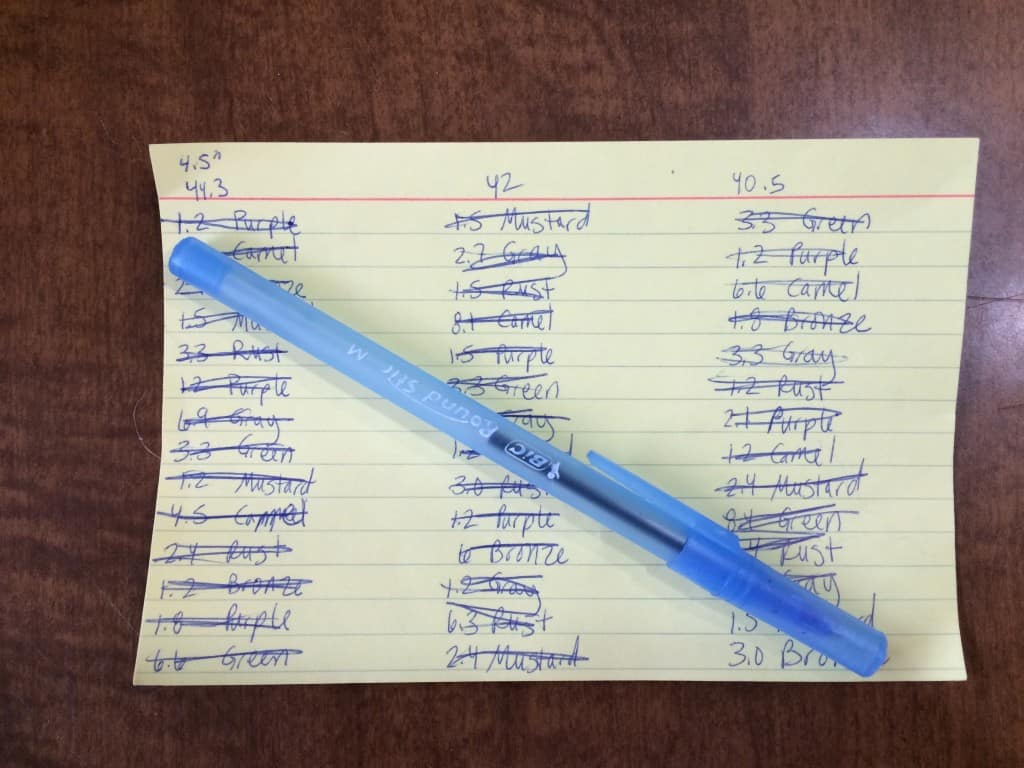 4.5"
44.3
1.2 Purple
Camel
1.5
3.3 Rust
1.2 Purple
6.9 Gray
3.3 Green
1.2 Mustard
4.5 Camel
2.4 Rust
1.2 Bronze
1.8 Purple
6.6 Green
42
1.5 Mustard
2.7 Gray
1.5 Rust
8.1 Camel
1.5 Purple
3.3 Green
Gray
3.0 Rust
1.2 Purple
6 Bronze
1.2 Gray
6.3 Rust
2.4 Mustard
40.5
3.3 Green
1.2 Purple
6.6 Camel
1.8 Bronze
3.3 Gray
1.2 Rust
2.1 Purple
1.2 Camel
2.4 Mustard
8.4 Green
Rust
Gray
1.5
3.0 Bronze
BIC Round Stic M